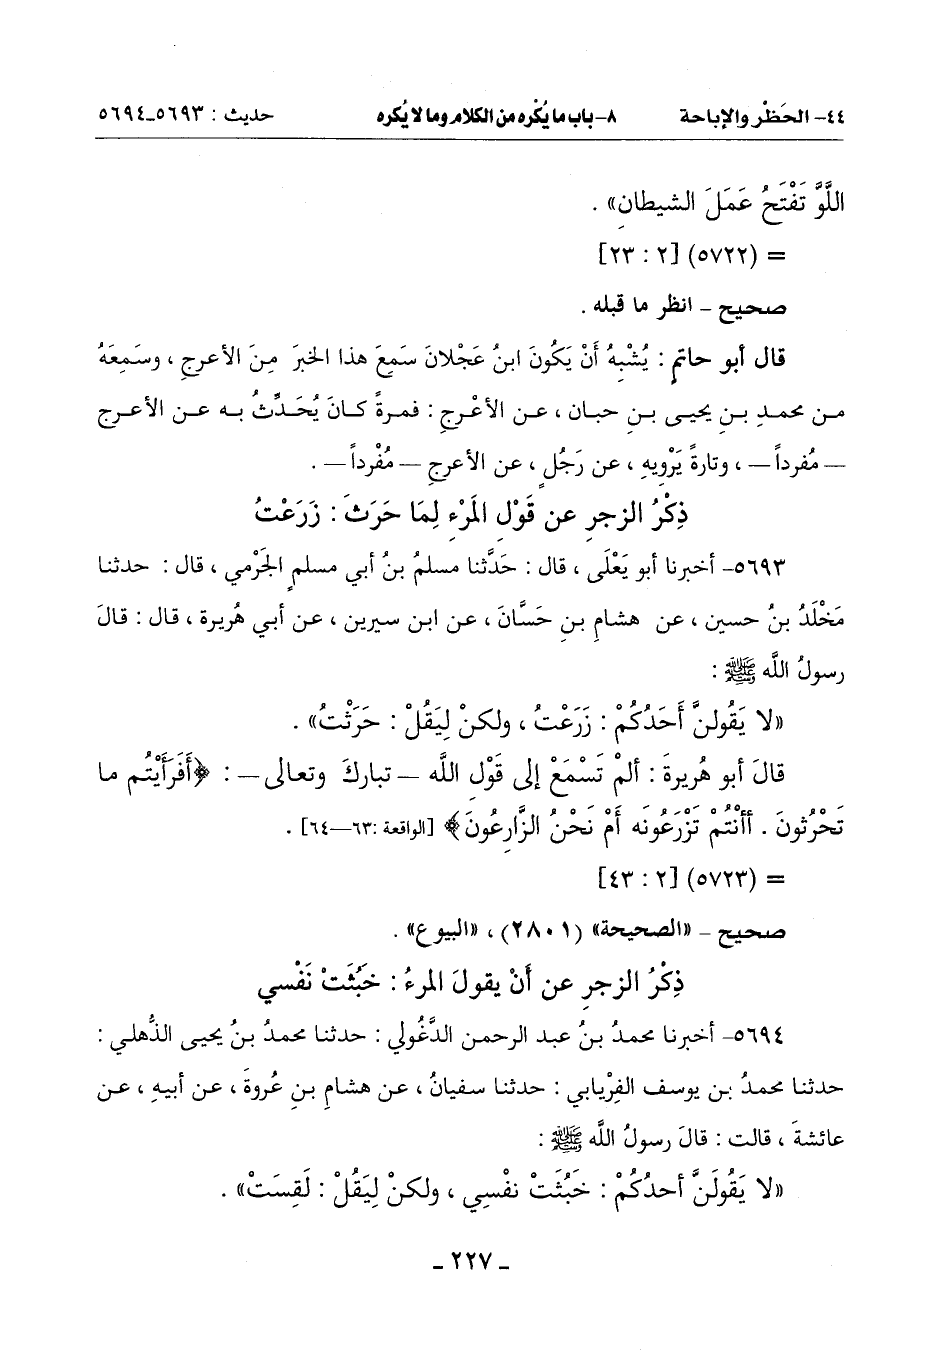 ٤٤- الحَظْر والإباحة ٨-باب ما يُكْره من الكلام وما لا يُكره حديث : ٥٦٩٣-٥٦٩٤
اللَّوَّ تَفْتَحُ عَمَلَ الشيطانِ» .
= (٥٧٢٢) [٢ : ٢٣]
صحيح - انظر ما قبله .
قال أبو حاتم : يُشْبِهُ أَنْ يَكُونَ ابنُ عَجْلانَ سَمِعَ هذا الخبرَ مِنَ الأعرجِ ، وسَمِعَهُ
من محمدِ بنِ يحيى بنِ حبان ، عن الأعْرجِ : فمرةً كانَ يُحَدِّثُ به عن الأعرج
— مُفرداً — ، وتارةً يَرْويهِ ، عن رَجُلٍ ، عن الأعرجِ — مُفْرداً — .
ذِكْرُ الزجرِ عن قَوْلِ المَرْءِ لِمَا حَرَثَ : زَرَعْتُ
٥٦٩٣- أخبرنا أبو يَعْلَى ، قال : حَدَّثنا مسلمُ بنُ أبي مسلمٍ الجَرْمي ، قال : حدثنا
مَخْلَدُ بنُ حسين ، عن هشامِ بنِ حَسَّانَ ، عن ابن سيرين ، عن أبي هُريرة ، قال : قالَ
رسولُ اللَّه ﷺ :
«لا يَقُولنَّ أَحَدُكُمْ : زَرَعْتُ ، ولكنْ لِيَقُلْ : حَرَثْتُ» .
قالَ أبو هُريرةَ : ألمْ تَسْمَعْ إلى قَوْلِ اللَّه — تباركَ وتعالى — : ﴿أَفَرَأَيْتُم ما
تَحْرُثونَ . أأنْتُمْ تَزْرَعُونَه أَمْ نَحْنُ الزَّارِعُونَ﴾ [الواقعة :٦٣—٦٤] .
= (٥٧٢٣) [٢ : ٤٣]
صحيح - «الصحيحة» (٢٨٠١) ، «البيوع» .
ذِكْرُ الزجرِ عن أَنْ يقولَ المرءُ : خَبُثَتْ نَفْسي
٥٦٩٤- أخبرنا محمدُ بنُ عبد الرحمن الدَّغُولي : حدثنا محمدُ بنُ يحيى الذُّهلي :
حدثنا محمدُ بن يوسف الفِرْيابي : حدثنا سفيانُ ، عن هشامِ بنِ عُروةَ ، عن أبيهِ ، عن
عائشةَ ، قالت : قالَ رسولُ اللَّه ﷺ :
«لا يَقُولَنَّ أحدُكُمْ : خَبُثَتْ نفْسِي ، ولكنْ لِيَقُلْ : لَقِسَتْ» .
- ٢٢٧ -